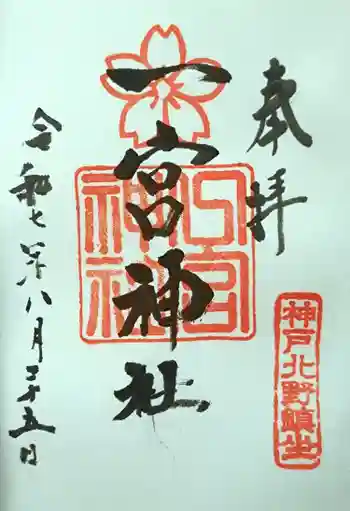 奉拝
神戸北野鎮座
一宮神社
令和七年八月二十五日